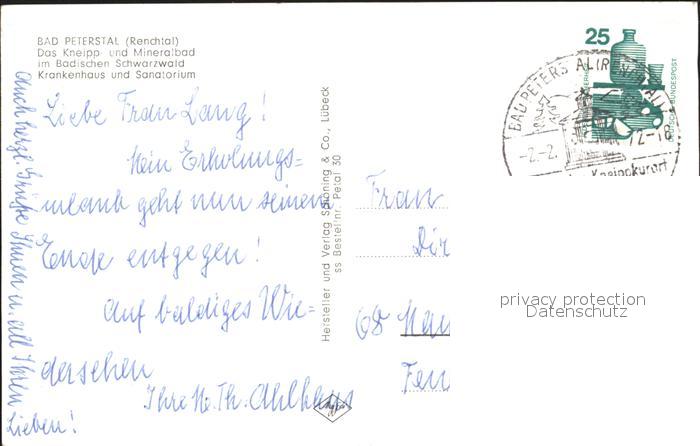 BAD PETERSTAL (Renchtal)
Das Kneipp- und Mineralbad
im Badischen Schwarzwald
Krankenhaus und Sanatorium
Liebe Frau Lang!
Mein Erholungs=
urlaub geht nun seinem
Ende entgegen!
Auf baldiges Wie=
dersehen
Ihre M. Th. Ahlhaus
Auch herzl. Grüße Ihnen u. all Ihren
Lieben!
Hersteller und Verlag Schöning & Co., Lübeck
ss Bestellnr. Petal 30
25
DEUTSCHE BUNDESPOST
BAD PETERSTAL (RENCHTAL)
-2.-2. 72-18
Kneippkurort
Frau
Dir
68 Man
Feu
privacy protection
Datenschutz